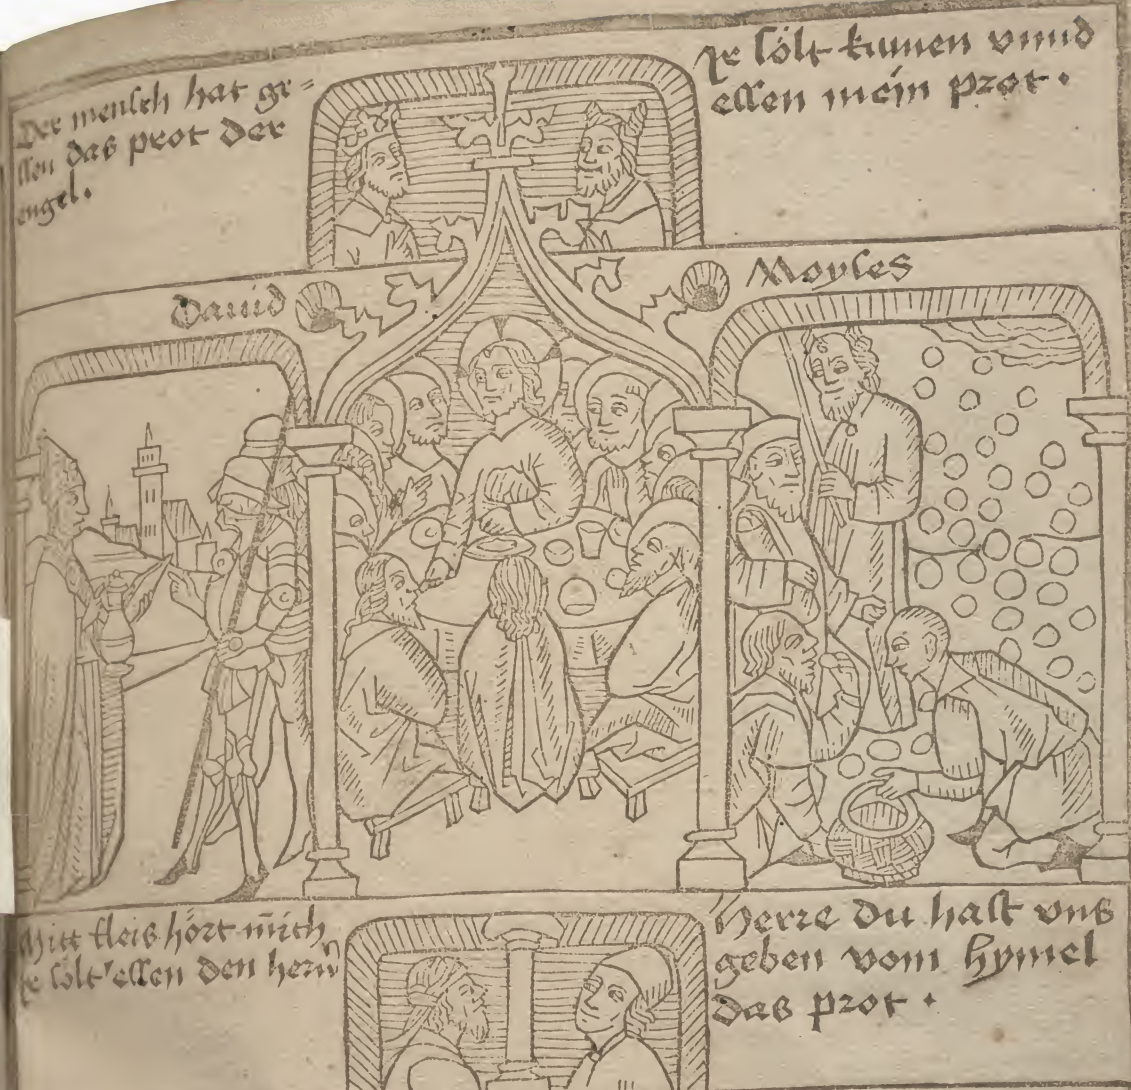 Der mensch hat ge-
ssen das prot der
engel.
Ir sölt kumen vnnd
essen mein prot.
Dauid
Moyses
Mitt fleis hört mich
Ir sölt essen den hern̄
Herre du hast vns
geben vom hymel
das prot.